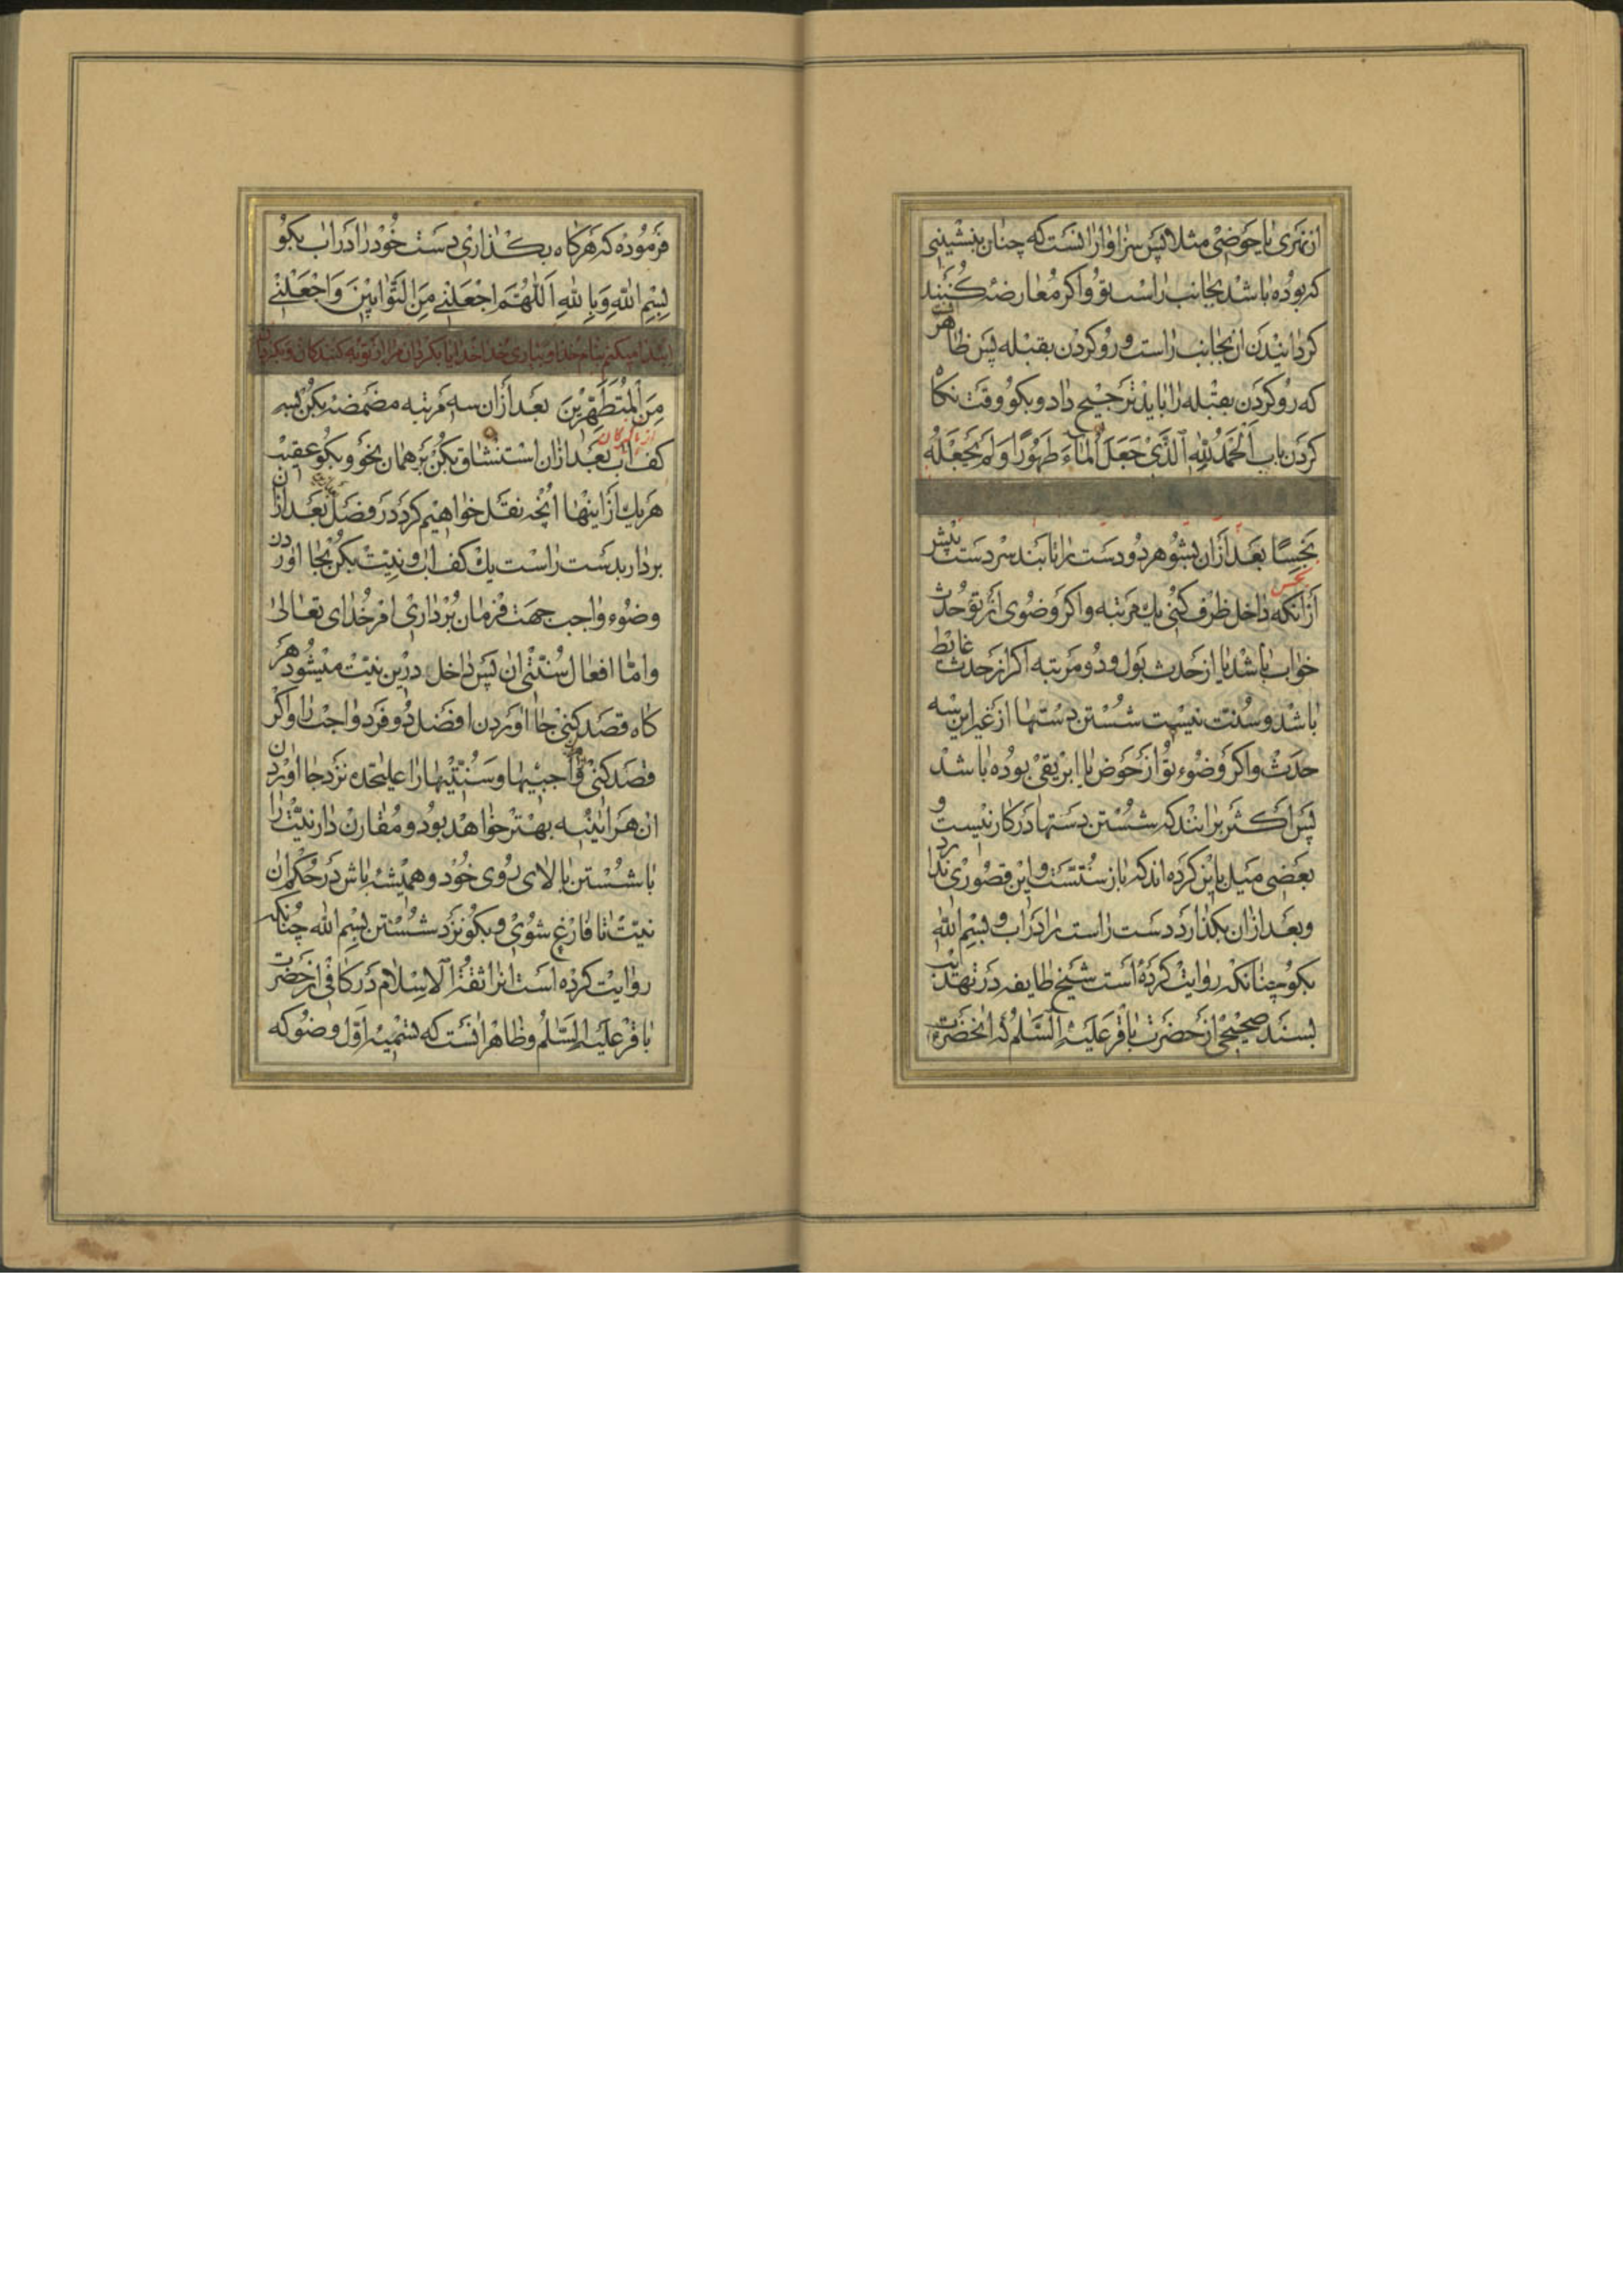 از نهری یا حوضی مثلا پس سزاوار آنست که چنان بنشینی
که بوده باشد بجانب راست تو و اکر معارضه کنند
کردانیدن آن بجانب راست و رو کردن بقبله پس ظاهر
که رو کردن بقبله را باید ترجیح داد و بکو وقت نکاه
کردن باب اَلْحَمْدُ لِلّٰهِ الَّذی جَعَلَ الْمآءَ طَهُورًا وَلَمْ یَجْعَلْهُ
نَجِسًا بعد از آن بشو هر دو دست را تا بند سر دست پیش
نجس
از آنکه داخل ظرف کنی یك مرتبه و اکر وضوی تو از حدث
خواب باشد یا از حدث بول و دو مرتبه اکر از حدث غایط
باشد و سنت نیست شستن دستها از غیر این سه
حدث و اکر وضوء تو از حوض یا ابریقی بوده باشد
پس اکثر برانند که شستن دستها در کار نیست و
بعضی میل باین کرده اند که باز سنتست و این قصوری ندارد
و بعد از آن بکذارد دست راست را در آب و بسم الله
بکو چنانکه روایت کرده است شیخ طایفه در تهذیب
بسند صحیحی از حضرت باقر علیه السّلام که آنحضرت
فرموده که هرکاه بکذاری دست خود را در آب بکو
بِسْمِ اللّٰهِ وَبِاللّٰهِ اَللّٰهُمَّ اجْعَلْنی مِنَ التَّوّابینَ وَاجْعَلْنی
ابتدا میکنم بنام خدا و بیاری خدا خدایا بکردان مرا از توبه کنندکان و بکردان
مِنَ الْمُتَطَهِّرینَ بعد از آن سه مرتبه مضمضه بکن بسه
از پاکیزکان
کف آب بعد از آن استنشاق بکن بر همان نحو و بکو عقیب
هر یك از اینها آنچه نقل خواهیم کرد در فصل بعد از آن
بردار بدست راست یك کف آب و نیت بکن بجا آوردن
وضوء واجب جهت فرمان برداری امر خدای تعالی
و اما افعال سنتی آن پس داخل درین نیت میشود هر
کاه قصد کنی بجا آوردن افضل دو فرد واجب را و اکر
قصد کنی واجبیها و سنتیها را علیحده نزد بجا آوردن
آن هر آینه بهتر خواهد بود و مقارن دار نیت را
با شستن بالای روی خود و همیشه باش در حکم آن
نیت تا فارغ شوی و بکو نزد شستن بسم الله چنانکه
روایت کرده است آنرا ثقة الاسلام در کافی از حضرت
باقر علیه السّلم و ظاهر آنست که تسمیه اول وضو که